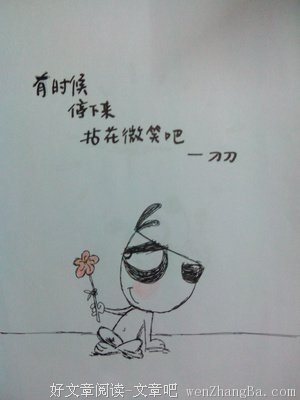 有时候
停下来
拈花微笑吧
一刀刀
好文章阅读-文章吧 wenZhangBa.com